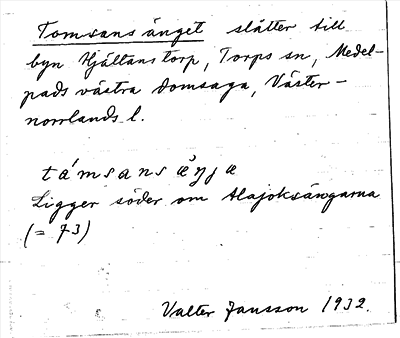 Tomsansänget slåtter till
byn Hjältanstorp, Torps sn, Medel-
pads västra domsaga, Väster-
norrlands l.
támsansäŋja
Ligger söder om Alajoksängarna
(= 73)
Valter Jansson 1932.